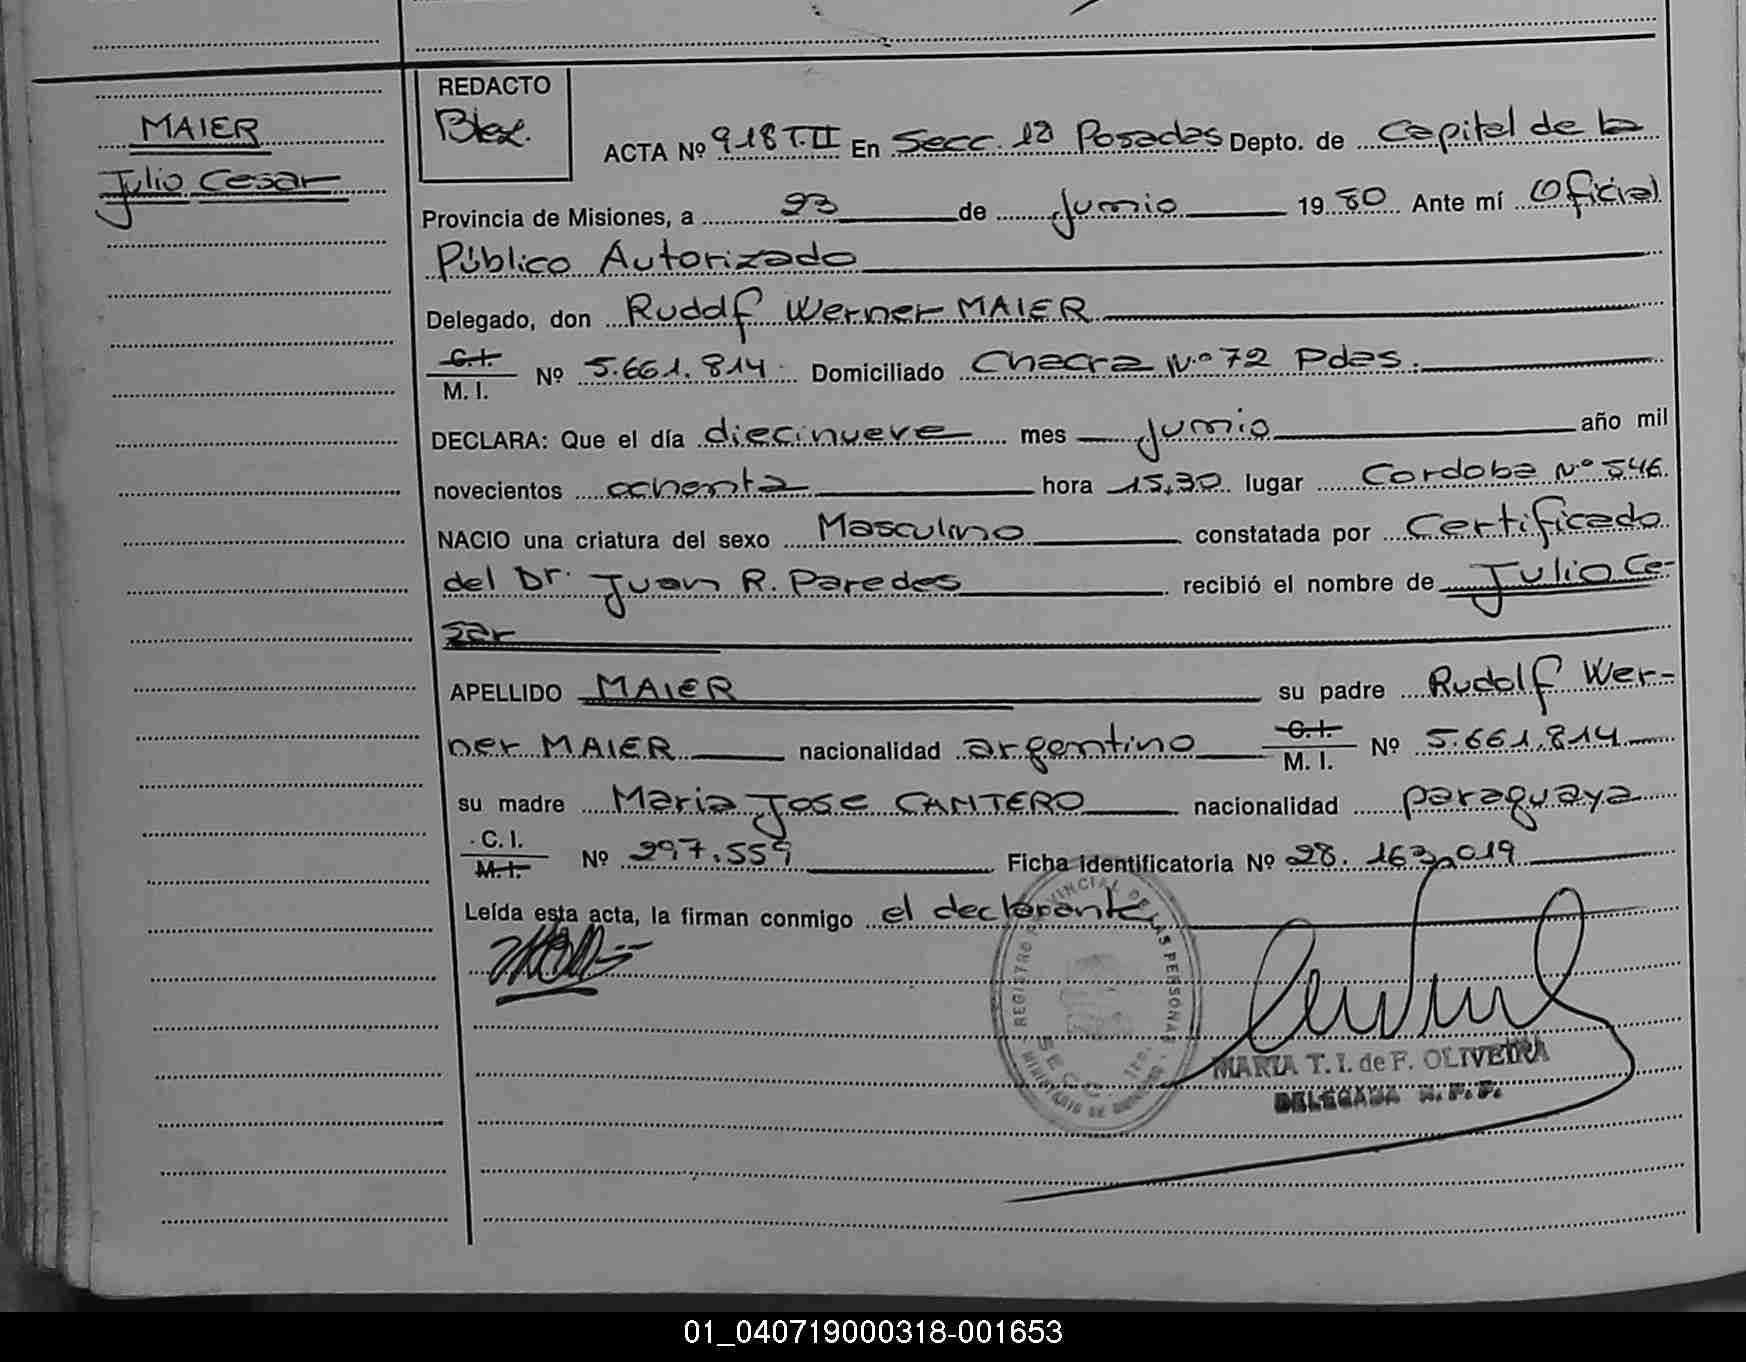 MAIER
Julio Cesar
REDACTO
ACTA Nº 918 T.II En Secc. 1ª Posadas Depto. de Capital de la
Provincia de Misiones, a 23 de Junio 1980 Ante mí Oficial
Público Autorizado
Delegado, don Rudolf Werner MAIER
C.I. M.I. Nº 5.661.814 Domiciliado Chacra Nº 72 Pdas.
DECLARA: Que el día diecinueve mes Junio año mil
novecientos ochenta hora 15,30 lugar Cordoba Nº 546.
NACIO una criatura del sexo Masculino constatada por Certificado
del Dr. Juan R. Paredes recibió el nombre de Julio Ce-
sar
APELLIDO MAIER su padre Rudolf Wer-
ner MAIER nacionalidad argentino C.I. M.I. Nº 5.661.814
su madre Maria Jose CANTERO nacionalidad paraguaya
C.I. M.I. Nº 297.559 Ficha identificatoria Nº 28.163.019
Leída esta acta, la firman conmigo el declarante
REGISTRO PROVINCIAL DE LAS PERSONAS
SECC. 1ra.
MARIA T. I. de F. OLIVEIRA
DELEGADA R. P. P.
01_040719000318-001653